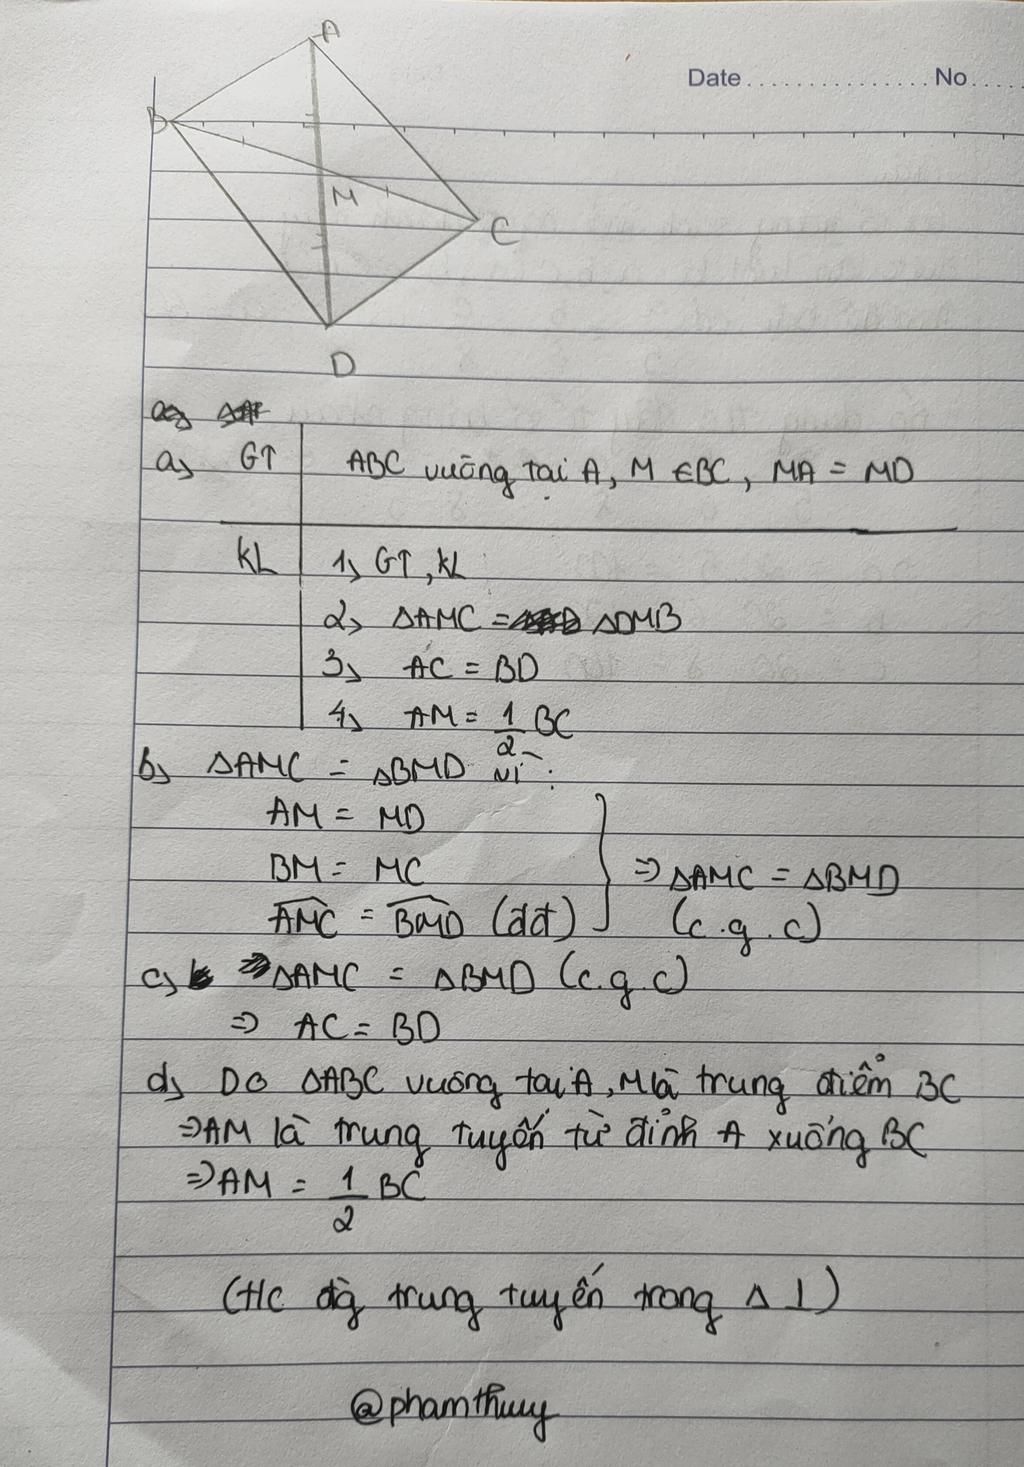 A
Date............... No....
B
M
C
D
a) GT ABC vuông tại A, M ∈ BC, MA = MD
KL 1) GT, KL
2) ΔAMC = ΔDMB
3) AC = BD
4) AM = 1/2 BC
b) ΔAMC = ΔBMD vì:
AM = MD
BM = MC
⇒ ΔAMC = ΔBMD
AMC = BMD (đđ)
(c.g.c)
c) ⇒ ΔAMC = ΔBMD (c.g.c)
⇒ AC = BD
d) Do ΔABC vuông tại A, M là trung điểm BC
⇒ AM là trung tuyến từ đỉnh A xuống BC
⇒ AM = 1/2 BC
(t/c đg trung tuyến trong Δ ⊥)
@phamthuy